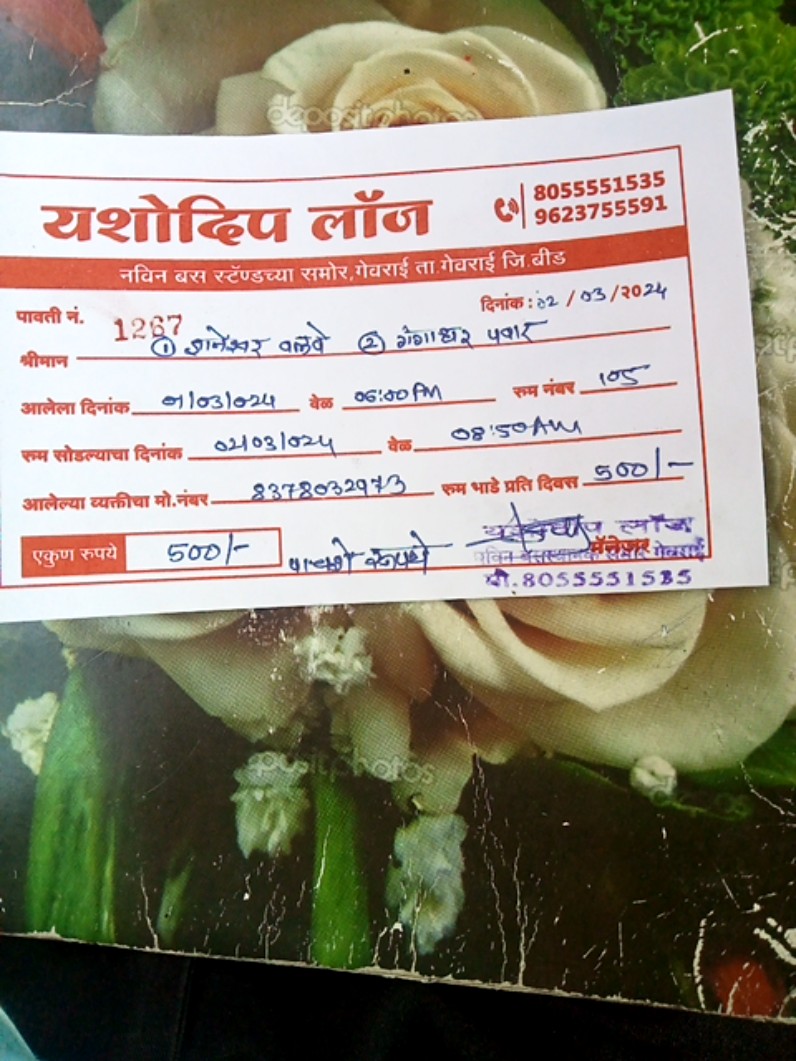 depositphotos
यशोदिप लॉज
8055551535
9623755591
नविन बस स्टॅण्डच्या समोर,गेवराई ता.गेवराई जि.बीड
पावती नं. 1267 दिनांक : 02 / 03 /२०24
श्रीमान ① ज्ञानेश्वर वलवे ② गंगाधर पवार
आलेला दिनांक 01/03/024 वेळ 06:00 PM रुम नंबर 105
रुम सोडल्याचा दिनांक 02/03/024 वेळ 08:50 AM
आलेल्या व्यक्तीचा मो.नंबर 8378032973 रुम भाडे प्रति दिवस 500/-
एकुण रुपये 500/- पाचशे रुपये
यशोदीप लॉज
मॅनेजर
नविन बसस्थानक समोर गेवराई
मो.8055551535
depositphotos